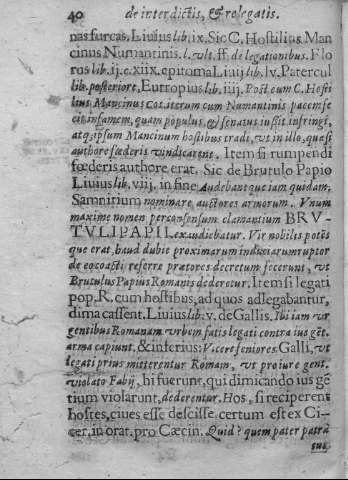 40 de interdictis, & relegatis.
nas furcas. Liuius lib. ix. Sic C. Hostilius Man
cinus Numantinis. l. vlt. ff. de legationibus. Flo
rus lib. ij. c. xiix. epitoma Liuij lib. lv. Patercul
lib. posteriore, Eutropius lib. iiij. Post eum C. Hosti
lius Mancinus cos. iterum cum Numantinis pacem fe
cit infamem, quam populus & senatus iussit infringi,
atq; ipsum Mancinum hostibus tradi, vt in illo, quasi
authore fœderis vindicarent. Item si rumpendi
fœderis authore erat. Sic de Brutulo Papio
Liuius lib. viij. in fine Audebantque iam quidam,
Samnitium nominare auctores armorum. Vnum
maxime nomen per consensum clamantium BRV-
TVLI PAPII exaudiebatur. Vir nobilis potēs
que erat, haud dubie proximarum induciarum ruptor
de eo coacti referre prætores decretum fecerunt, vt
Brutulus Papius Romanis dederetur. Item si legati
pop. R. cum hostibus, ad quos adlegabantur,
dimacassent. Liuius lib. v. de Gallis. Ibi iam vr
gentibus Romanam vrbem fatis legati contra ius gēt.
arma capiunt. & inferius: Vicere seniores Galli, vt
legati prius mitterentur Romam, vt pro iure gent.
violato Fabij, hi fuerunt, qui dimicando ius gē
tium violarunt, dederentur. Hos, si reciperent
hostes, ciues esse desciisse certum est ex Ci-
cer. in orat. pro Cæcin. Quid? quem pater patra
tus